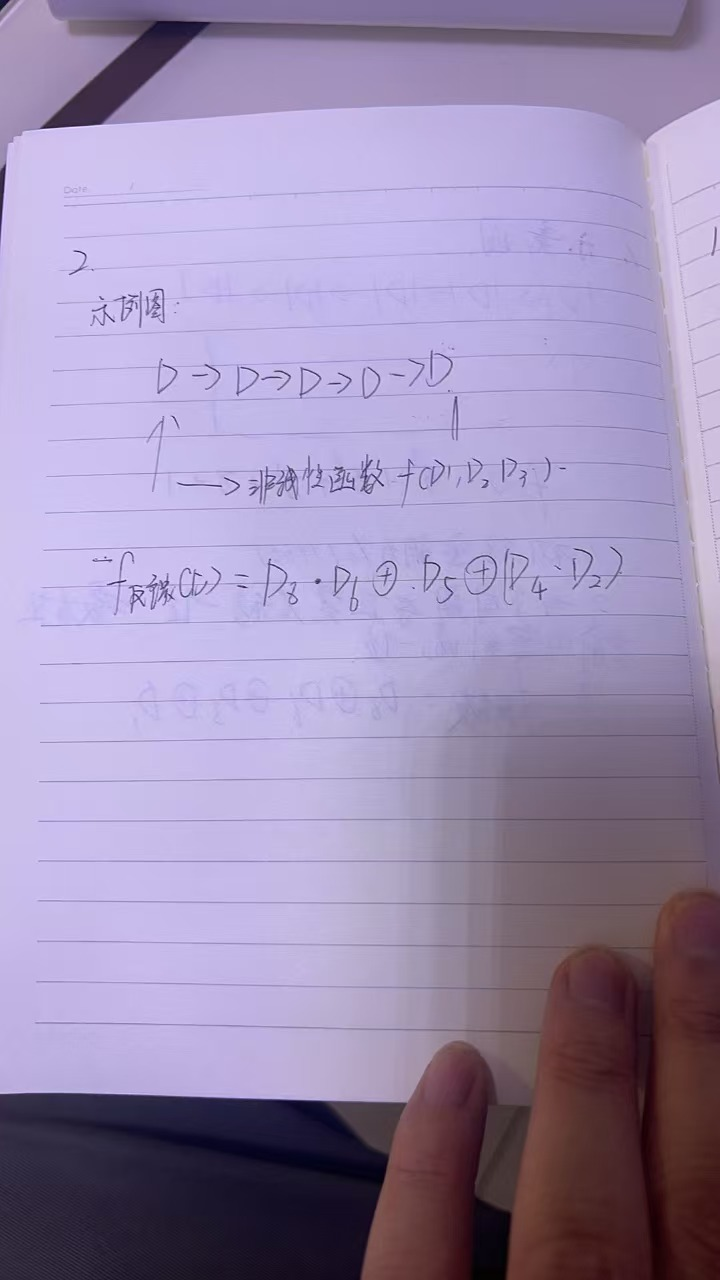 Date. /
2.
示例图:
D → D → D → D → D
→ 非线性函数 f(D1, D2 D3)
f反馈(t) = D8 · D6 ⊕ D5 ⊕ (D4 · D2)